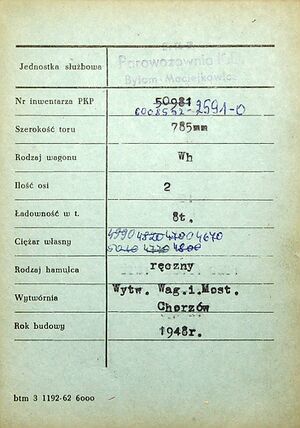 Parowozownia Kl.
Jednostka służbowa Bytom-Maciejkowice
Nr inwentarza PKP 50981
6008552-2591-0
Szerokość toru 785mm
Rodzaj wagonu Wh
Ilość osi 2
Ładowność w t. 8t.
4990 4820 4700 4670
Ciężar własny 5010 4720 4800
Rodzaj hamulca ręczny
Wytwórnia Wytw. Wag.i.Most.
Chorzów
Rok budowy 1948r.
btm 3 1192-62 6000